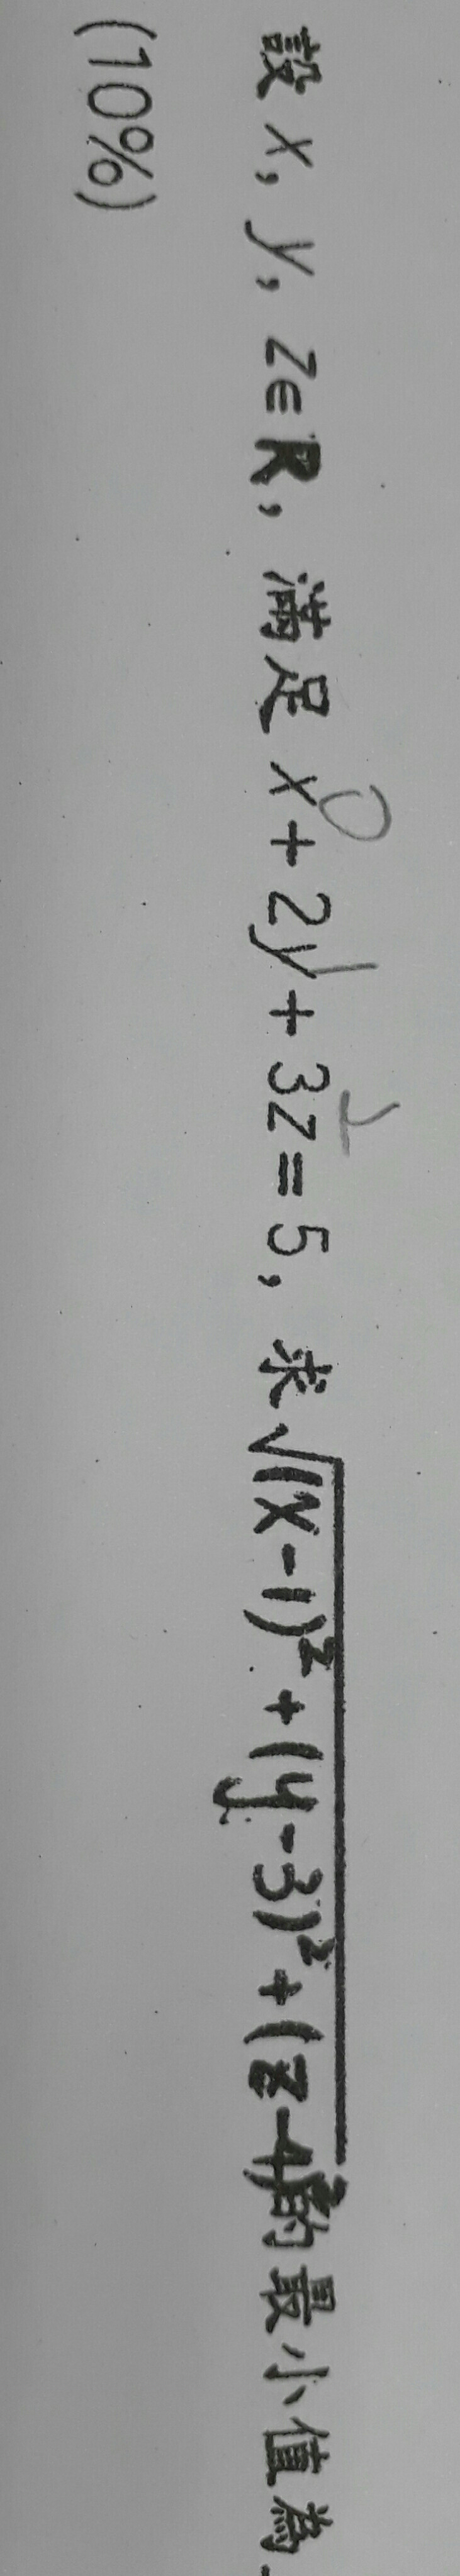 設 x, y, z∈R, 滿足 x + 2y + 3z = 5, 求√(x-1)²+(y-3)²+(z-4)²的最小值為
(10%)